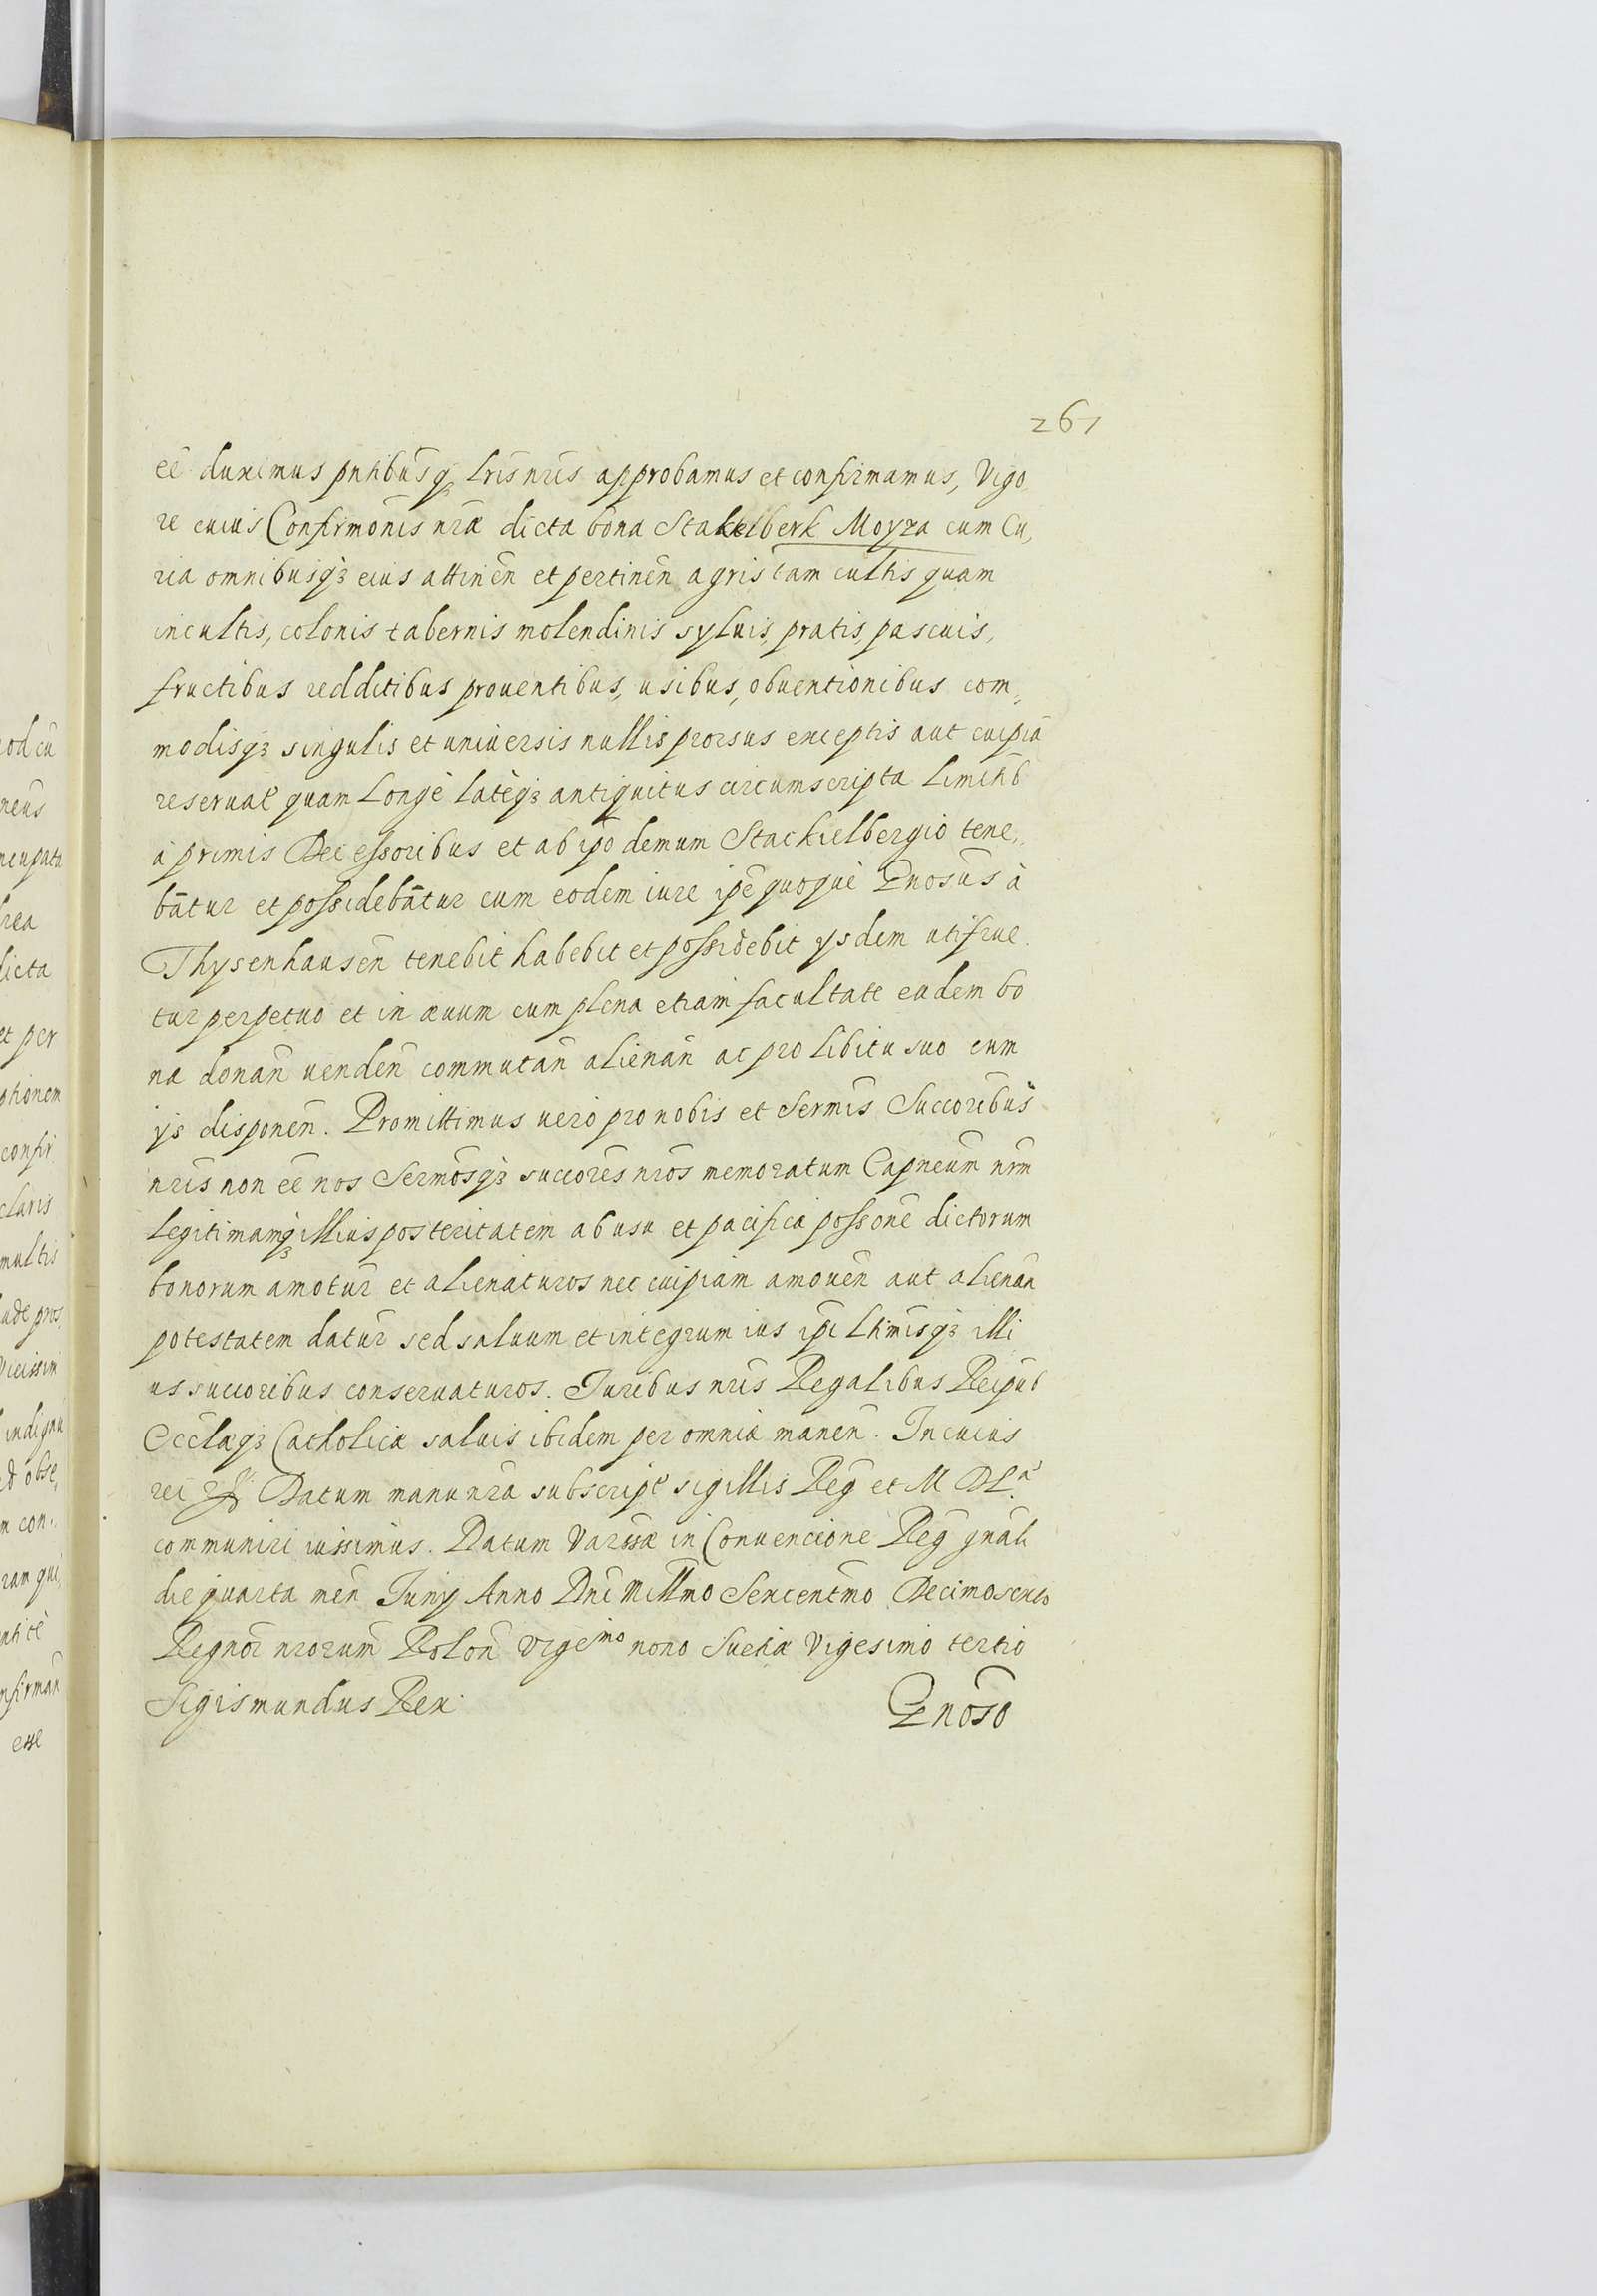 267
eē duximus pñtibusq̃ lr̃is nr̃is approbamus et confirmamus, Vigo
re cuius Confirmõnis nr̃æ dicta bona Stakelberk Moyza cum Cu,
ria omnibusq3 eius attineñ et pertineñ agris tam cultis quam
incultis, colonis tabernis molendinis syluis, pratis, pascuis,
fructibus redditibus prouentibus, usibus, obuentionibus com,
modisq3 singulis et uniuersis nullis prorsus exceptis aut cuipiã
reseruat̃ quam longè latèq3 antiquitus circumscripta limitib
à primis Decessoribus et ab ip̃o demum Stackielbergio tene,
bãtur et possidebãtur eum eodem iure ip̃e quoque Gñosus à
Thysenhausen tenebit habebit et possidebit ysdem utifrue
tur perpetuo et in æuum cum plena etiam facultate eadem bo
na donañ uendeñ commutañ alienañ ac pro libitu suo cum
ys disponeñ. Promittimus uero pro nobis et Serm̃is Succoribus
nr̃is non eē nos Serm̃osq3 succores nr̃os memoratum Capneum nr̃m
legitimamq3 illius posteritatem ab usu et pacifica possõne dictorum
bonorum amotur̃ et alienaturos nec cuipiam amoueñ aut alienañ
potestatem datur̃ sed saluum et integrum ius ip̃i ltimisq3 illi
us succoribus conseruaturos. Juribus nr̃is Regalibus Reipub
Ecclæq3 Catholicæ saluis ibidem per omnia maneñ. In cuius
rei Datum manu nr̃a subscript̃ sigillis Reg̃ et M D L.ᵃᵉ
communiri iussimus. Datum Varssæ in Conuencione Reg̃ gnãli
die quarta meñ Juny Anno Dñi Millmo Sexcentmo Decimosexto
Regnor̃ nrorum Poloñ Vigeᵐᵒ nono Sueciæ Vigesimo tertio
Sigismundus Rex.
Gñoso
od cũ
neus
ncupata
rea
dicta
et per
ptionem
confir
claris
multis
ude pros,
Vicissim
indignũ
d obse,
m con,
ram qui
nfirmañ
esse